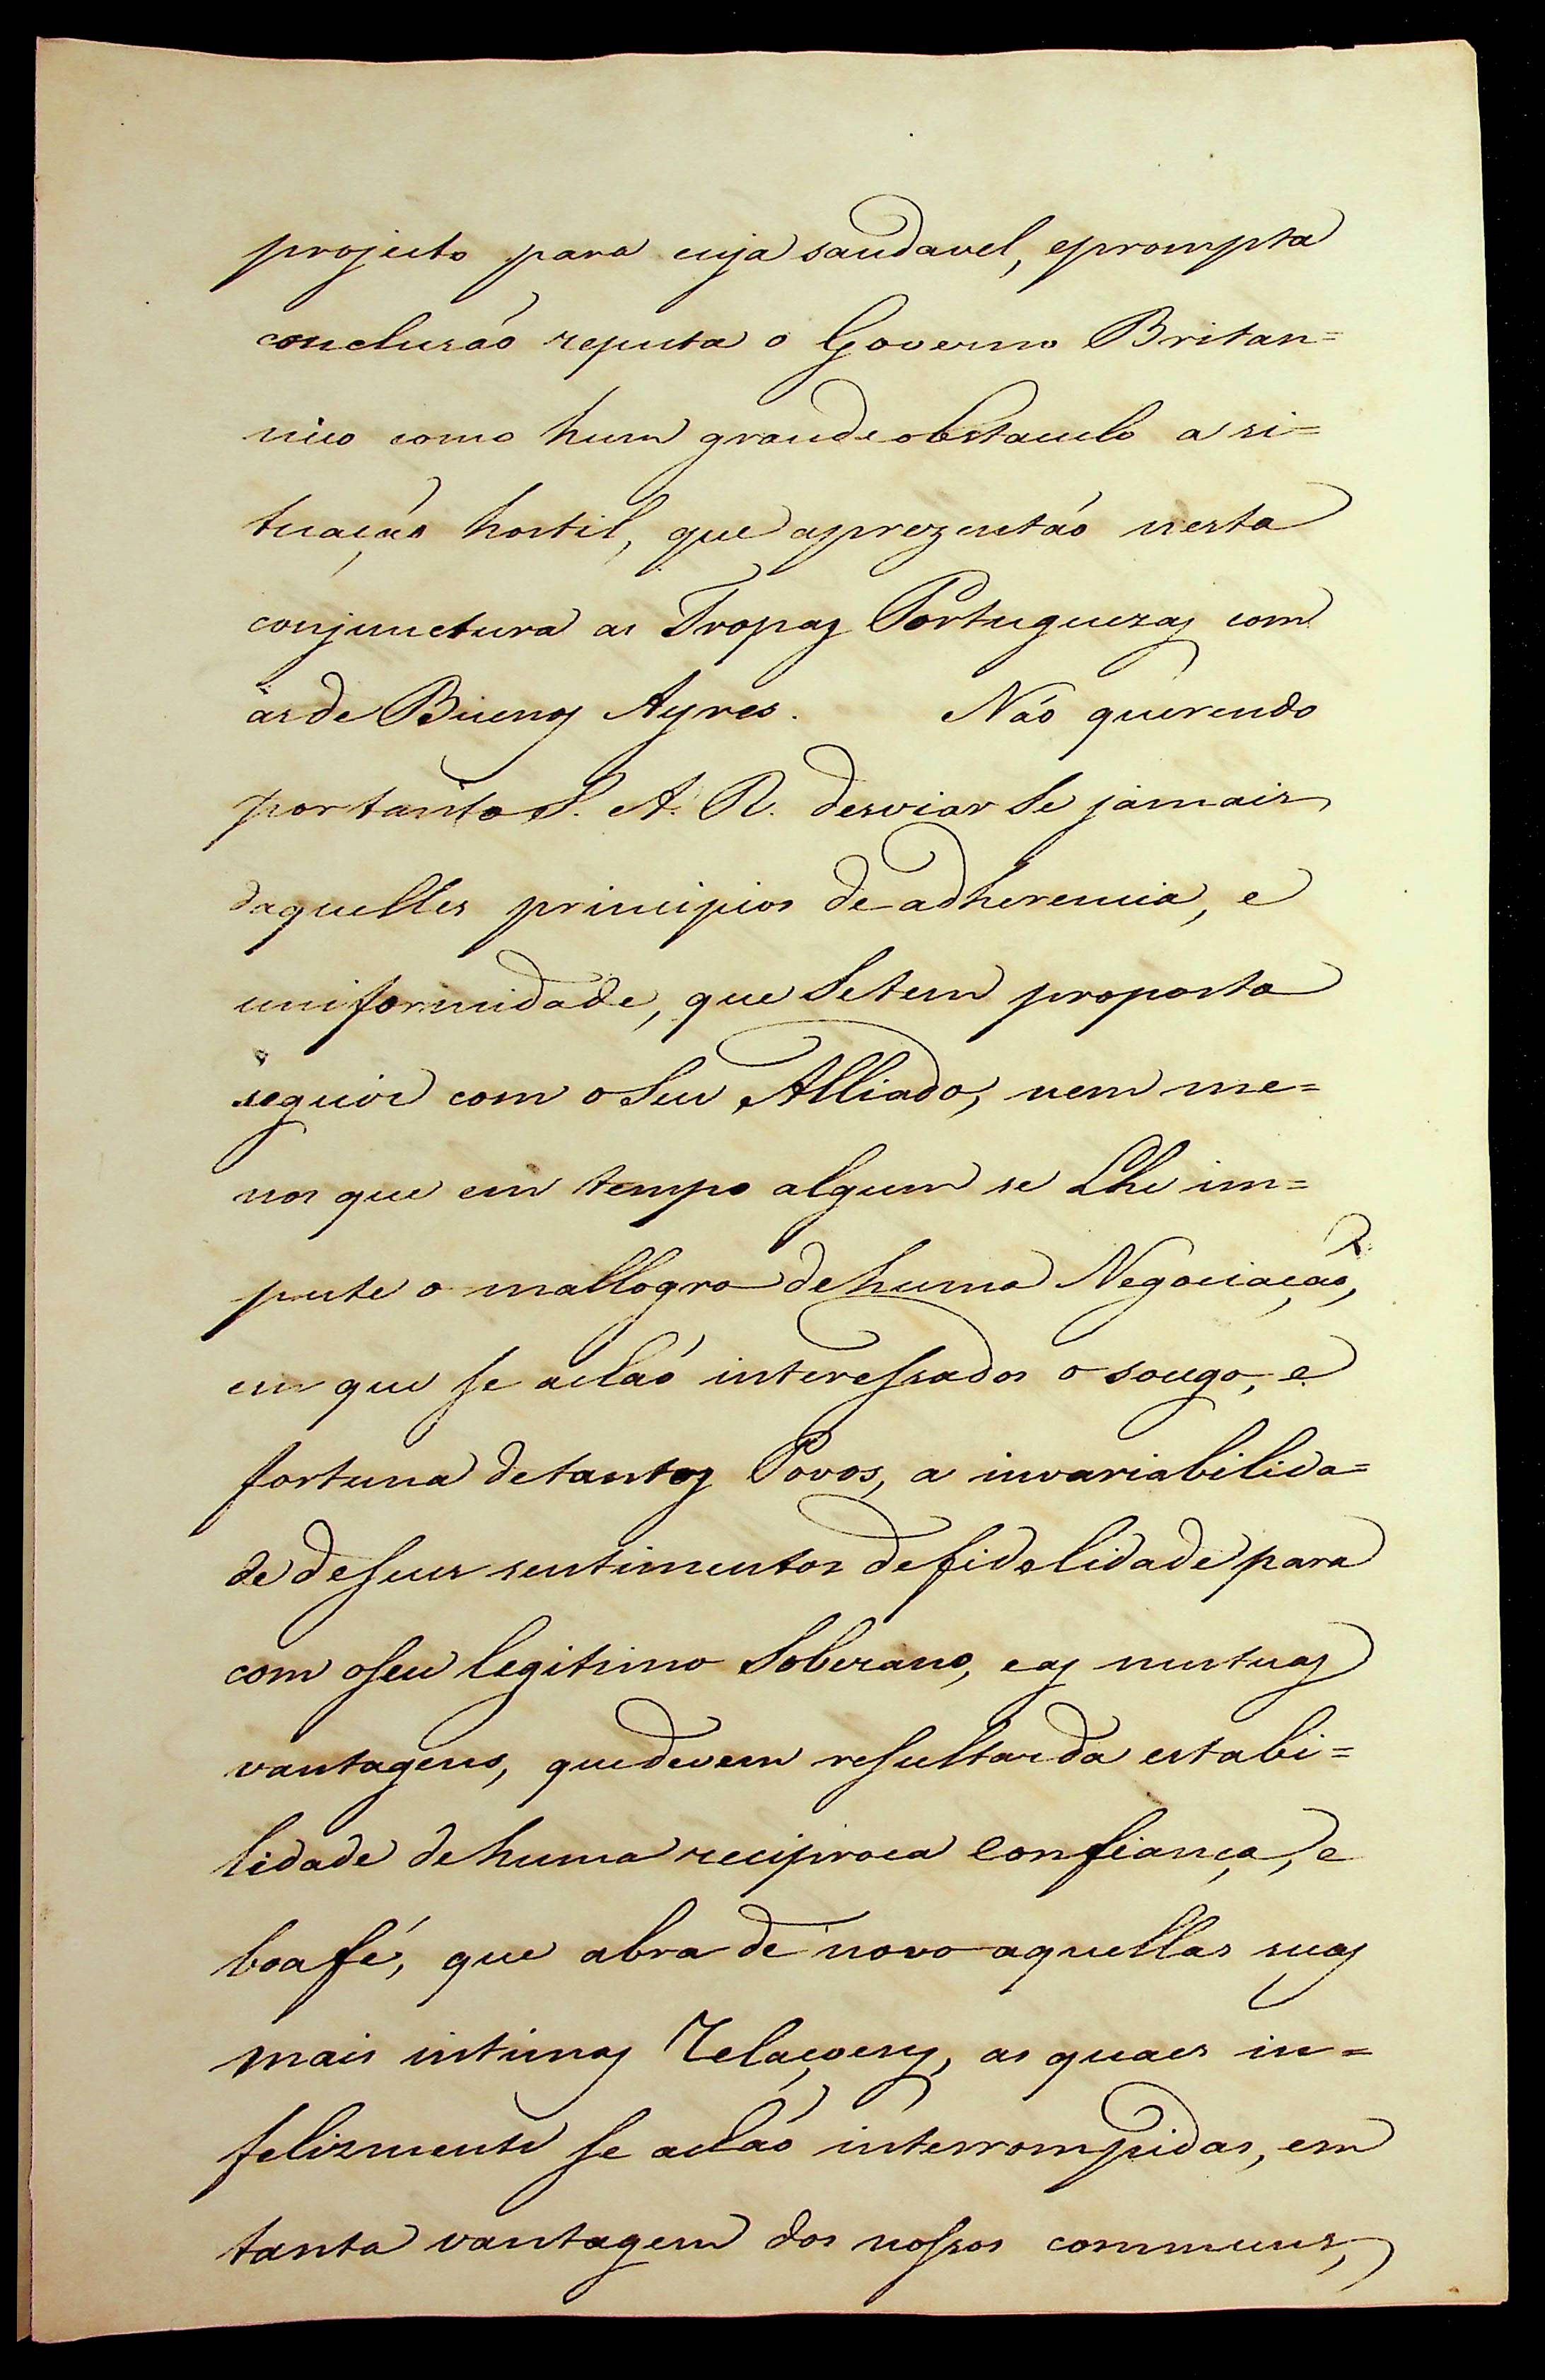 projecto para cuja saudavel, e prompta
conclusáo reputa o Governo Britan=
nico como hum grande obstaculo a si=
tuaçáo hostil, que aprezentáo nesta
conjunctura as Tropas Portuguezas com
as de Buenos Ayres. Náo querendo
portanto S. A. R. desviar Se jámais
daquelles principios de adherencia, e
uniformidade, que Se tem proposto
seguir com o Seu Alliado, nem me=
nos que em tempo algum se Lhe im=
pute o mallogro de huma Negociaçáo,
em que se acháo interessados o socego, e
fortuna de tantos Povos, a invariabilida=
de de seus sentimentos de fidelidade para
com o seu legitimo Soberano, e as mutuas
vantagens, que devem resultar da estabi=
lidade de huma reciproca Confiança, e
boa fé, que abra de novo aquellas suas
mais intimas Relaçoens, as quaes in=
felizmente se acháo interrompidas, em
tanta vantagem dos nossos communs,